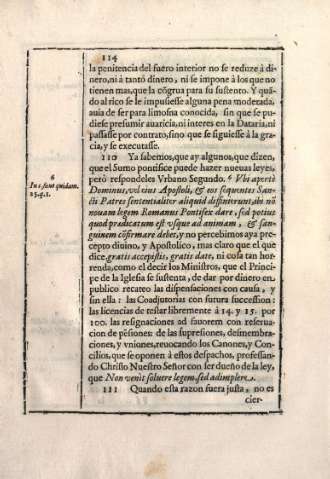 114
la penitencia del fuero interior no se reduze à di-
nero, ni à tantó dinero, ni se impone à los que no
tienen mas, que la cõgrua para su sustento. Y quã-
do al rico se le impusiesse alguna pena moderada,
auia de ser para limosna conocida, sin que se pu-
diesse presumir auaricia, ni interes en la Dataria, ni
passasse por contrato, sino que se siguiesse à la gra-
cia, y se executasse.
110 Ya sabemos, que ay algunos, que dizen,
que el Sumo pontifice puede hazer nueuas leyes,
pero respondeles Vrbano Segundo. 6 Vbi apertè
6
In c. sunt quidam.
25. q. 1.
Dominus, vel eius Apostoli, & eos sequentes San-
cti Patres sententialiter aliquid diffinierunt, ibi nõ
nouam legem Romanus Pontifex dare, sed potius
quod prædicatum est vsque ad animam, & san-
guinem cõfirmare debet, y no percebimos aya pre-
cepto diuino, y Apostolico, mas claro que el que
dice gratis accepistis, gratis date, ni cosa tan ho-
rrenda, como el decir los Ministros, que el Princi-
pe de la Iglesia se sustenta, de dar por dinero en
publico recateo las dispensaciones con causa, y
sin ella: las Coadjutorias con futura succession:
las licencias de testar libremente à 14. y 15. por
100. las resignaciones ad fauorem con reseruа-
cion de pẽsiones: de las supresiones, desmembra-
ciones, y vniones, reuocando los Canones, y Con-
cilios, que se oponen à estos despachos, professan-
do Christo Nuestro Señor con ser dueño de la ley,
que Non venit soluere legem, sed adimplere.
111 Quando esta razon fuera justa, no es
cier-